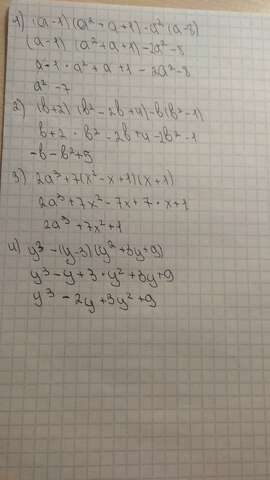 1) (a-1)(a²+a+1)-a²(a-8)
(a-1)(a²+a+1)-2a²-8
a-1·a²+a+1-2a²-8
a²-7
2) (b+2)(b²-2b+4)-b(b²-1)
b+2·b²-2b+4-2b²-1
-b-b²+5
3) 2a³+7(x²-x+1)(x+1)
2a³+7x²-7x+7·x+1
2a³+7x²+1
4) y³-(y-3)(y²+3y+9)
y³-y+3·y²+3y+9
y³-2y+3y²+9